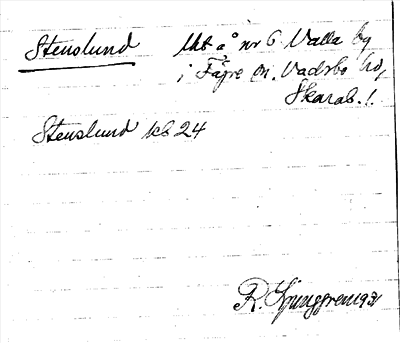 Stenslund Uhb å nr 6 Valla by
i Fägre sn. Vadsbo hd,
Skarab. l.
Stenslund kb 24
R. Ljunggren 1931